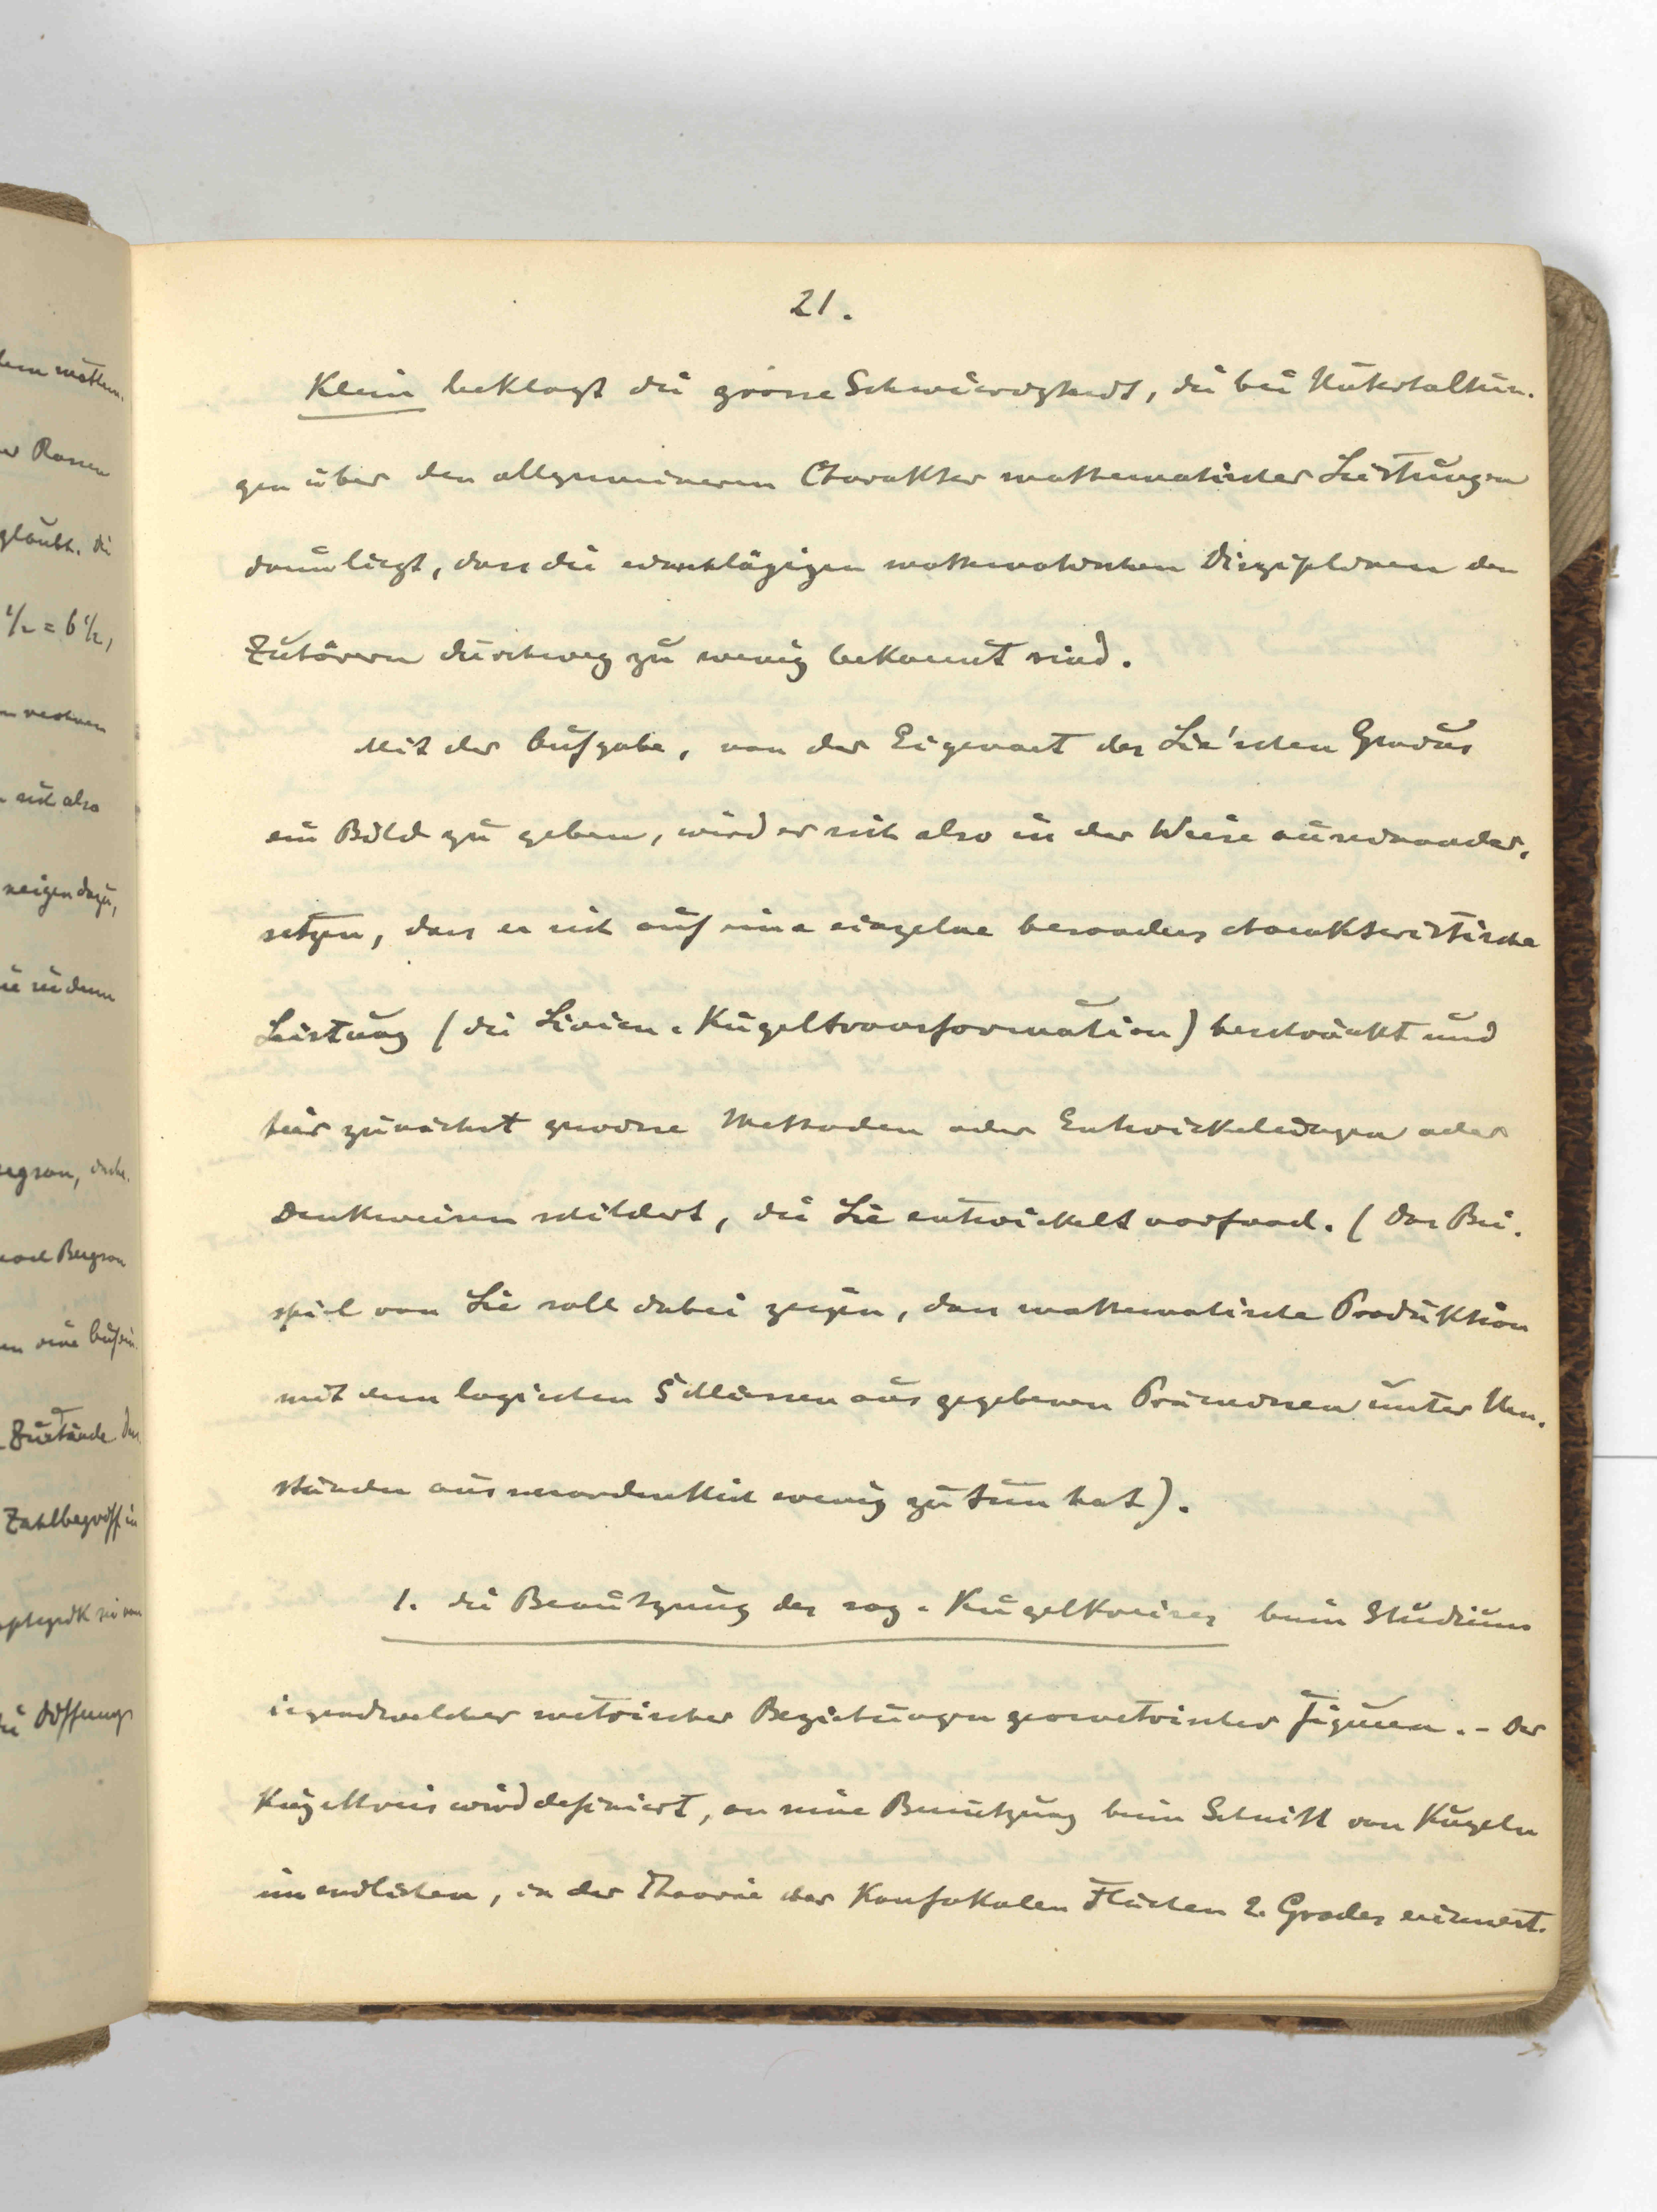 21.
Klein beklagt die grosse Schwierigkeit, die bei Unterhaltun-
gen über den allgemeineren Charakter mathematischer Leistungen
darin liegt, dass die einschlägigen mathematischen Disziplinen den
Zuhörern durchweg zu wenig bekannt sind.
Mit der Aufgabe, von der Eigenart des Lie'schen Genius
ein Bild zu geben, wird er sich also in der Weise auseinander-
setzen, dass er sich auf eine einzelne besonders charakteristische
Leistung (die Linien-Kugeltransformation) beschränkt und
hier zunächst gewisse Methoden oder Entwickelungen oder
Denkweisen schildert, die Lie entwickelt vorfand. (Das Bei-
spiel von Lie soll dabei zeigen, dass mathematische Produktion
mit dem logischen Schliessen aus gegebenen Prämissen unter Um-
ständen ausserordentlich wenig zu tun hat).
1. Die Benützung des sog. Kugelkreises beim Studium
irgendwelcher metrischer Beziehungen geometrischer Figuren. - Der
Kugelkreis wird definiert, an seine Benützung beim Schnitt von Kugeln
im endlichen, in der Theorie der Konfokalen Flächen 2. Grades erinnert.
dem mathem.
er Rassen
glaubt. Die
1/2 = 6 1/2,
n rechnen
sich also
neigen dazu,
ie in denn
Bergson
Zustände
Zahlbegriff in
Hoffnung